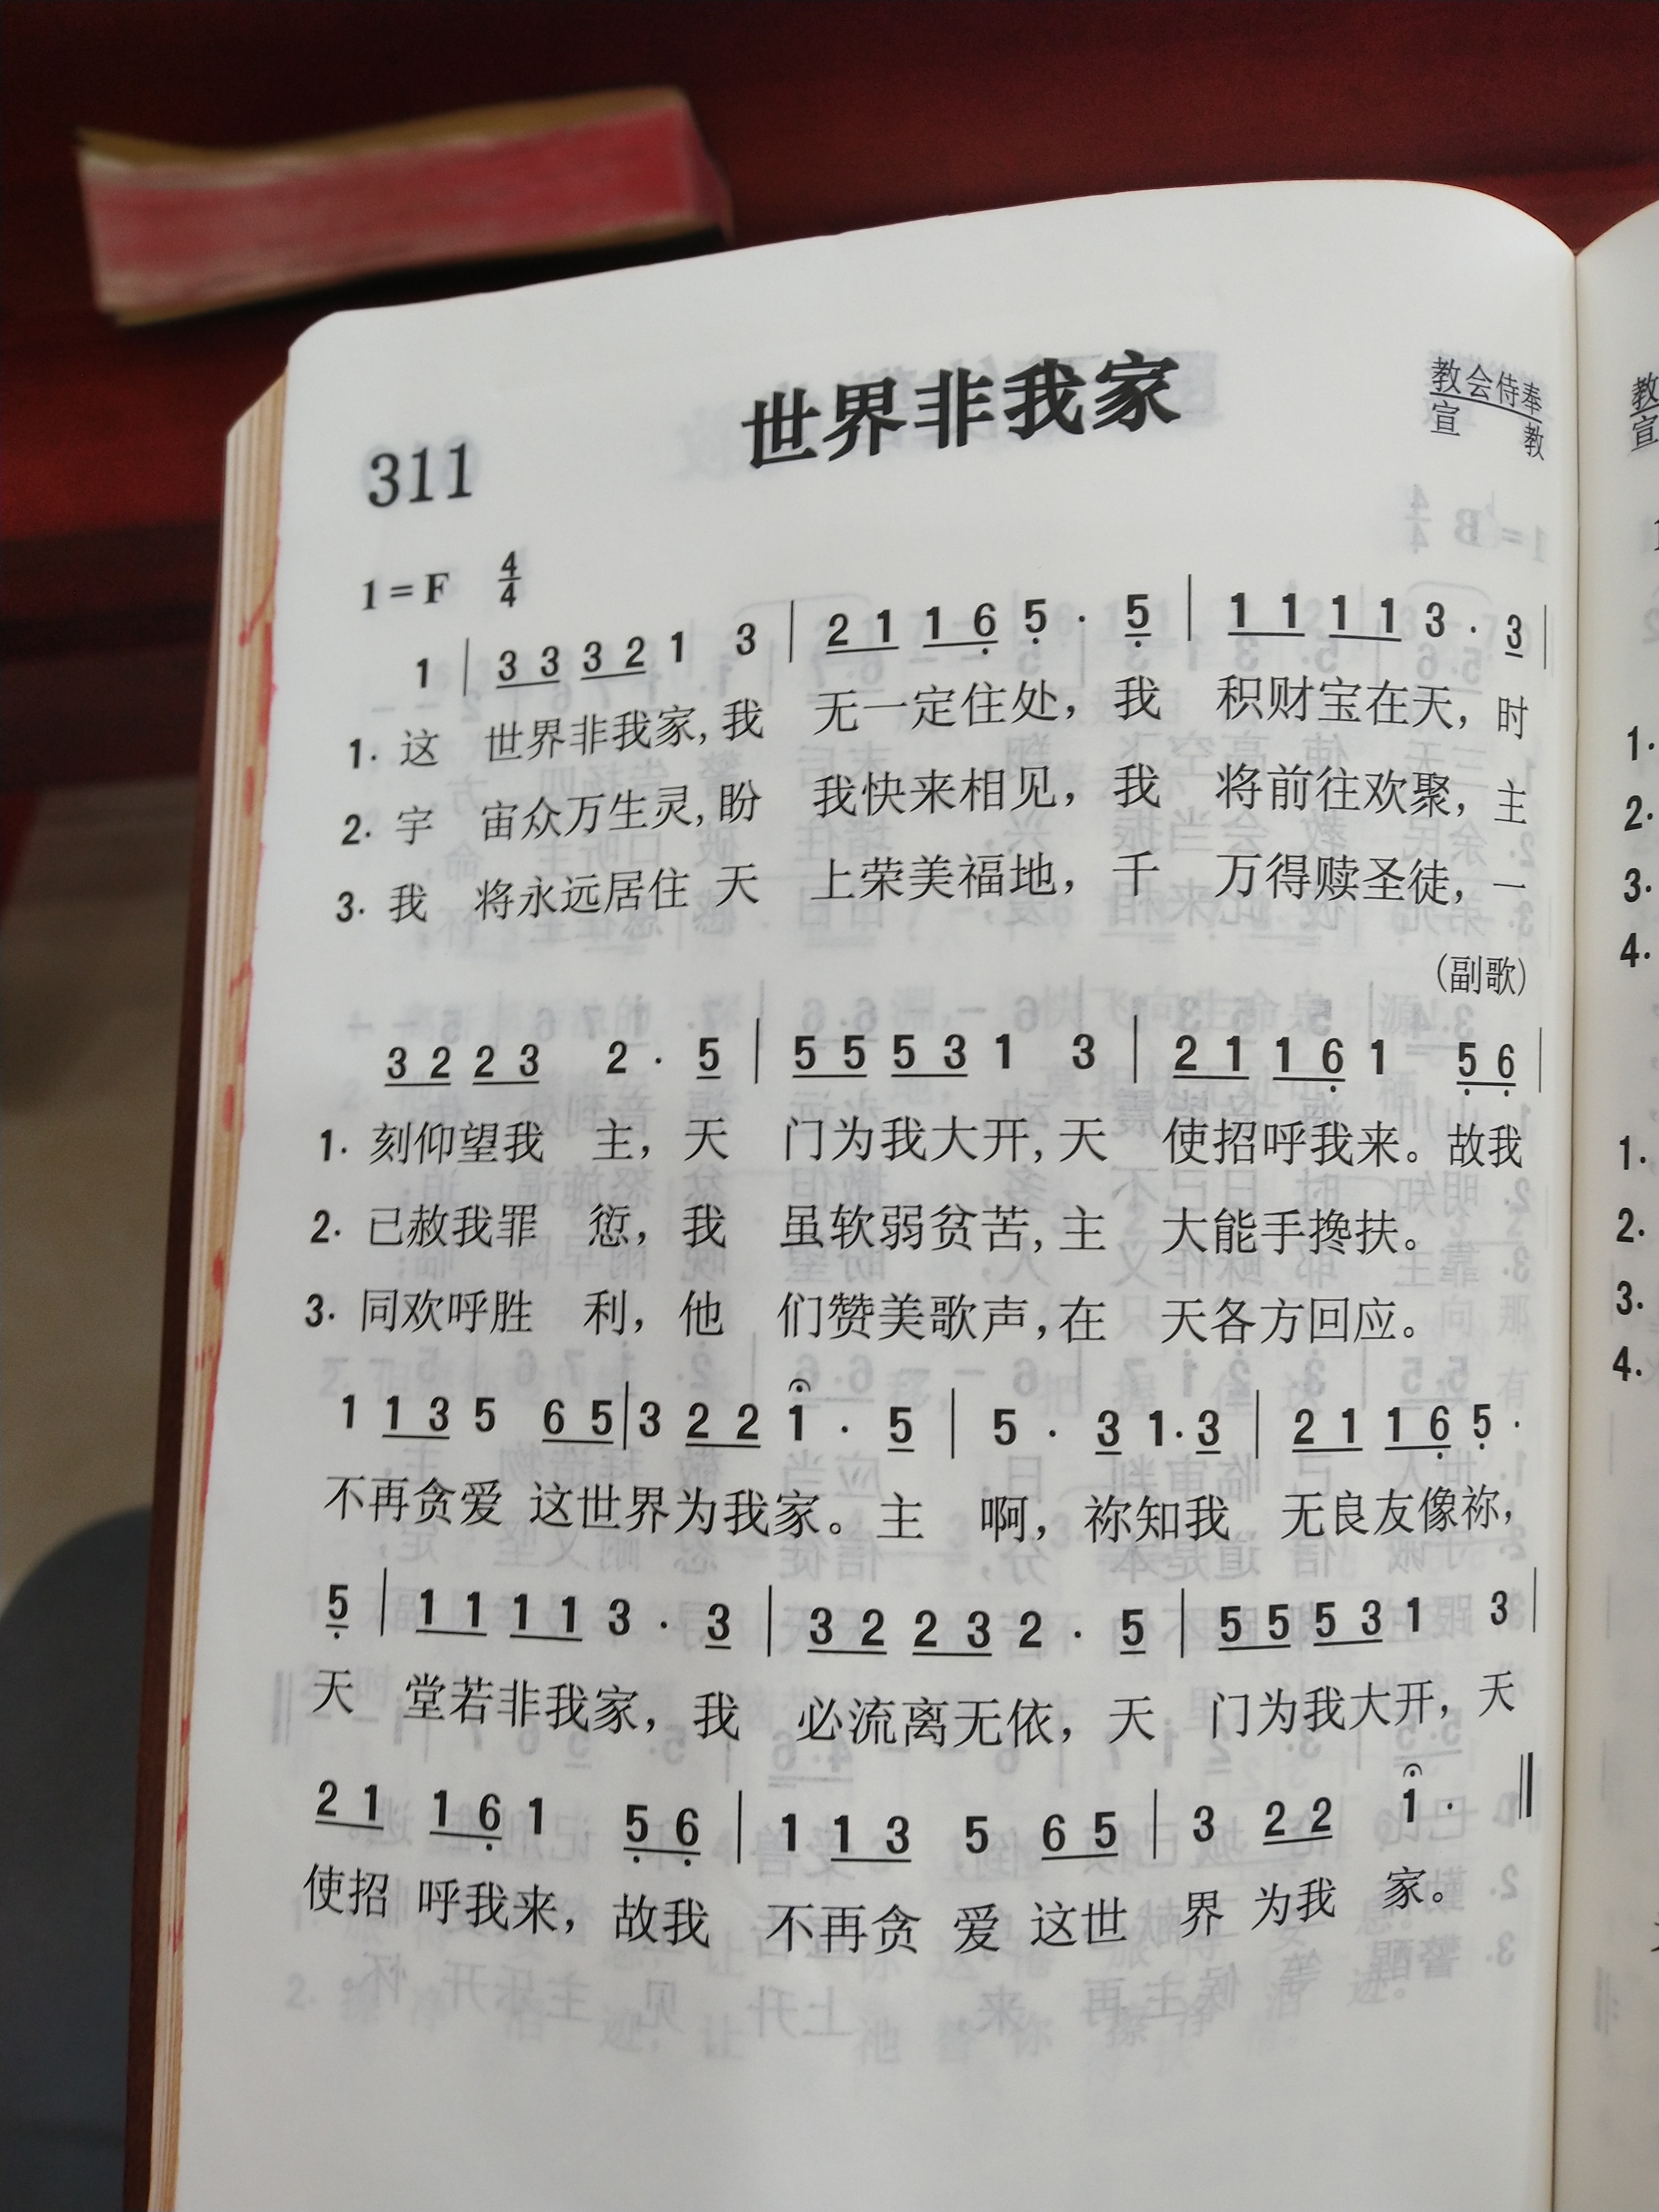 世界非我家
教会侍奉
宣 教
311
1 = F 4/4
1 | 3 3 3 2 1 3 | 2 1 1 6 5 · 5 | 1 1 1 1 3 · 3 |
1. 这 世界非我家, 我 无一定住处, 我 积财宝在天, 时
2. 宇 宙众万生灵, 盼 我快来相见, 我 将前往欢聚, 主
3. 我 将永远居住 天 上荣美福地, 千 万得赎圣徒, 一
(副歌)
3 2 2 3 2 · 5 | 5 5 5 3 1 3 | 2 1 1 6 1 5 6 |
1. 刻仰望我 主, 天 门为我大开, 天 使招呼我来。故我
2. 已赦我罪 愆, 我 虽软弱贫苦, 主 大能手搀扶。
3. 同欢呼胜 利, 他 们赞美歌声, 在 天各方回应。
1 1 3 5 6 5 | 3 2 2 1 · 5 | 5 · 3 1 · 3 | 2 1 1 6 5 ·
不再贪爱 这世界为我家。主 啊, 祢知我 无良友像祢,
5 | 1 1 1 1 3 · 3 | 3 2 2 3 2 · 5 | 5 5 5 3 1 3 |
天 堂若非我家, 我 必流离无依, 天 门为我大开, 天
2 1 1 6 1 5 6 | 1 1 3 5 6 5 | 3 2 2 1 · ‖
使招 呼我来, 故我 不再贪 爱 这世 界 为我 家。
教
宣
1.
2.
3.
4.
1.
2.
3.
4.